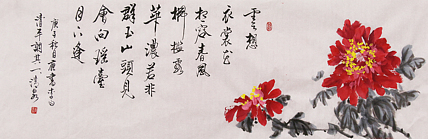 雲想
衣裳花
想容春風
拂檻露
華濃若非
群玉山頭見
會向瑤臺
月下逢
清平調其一